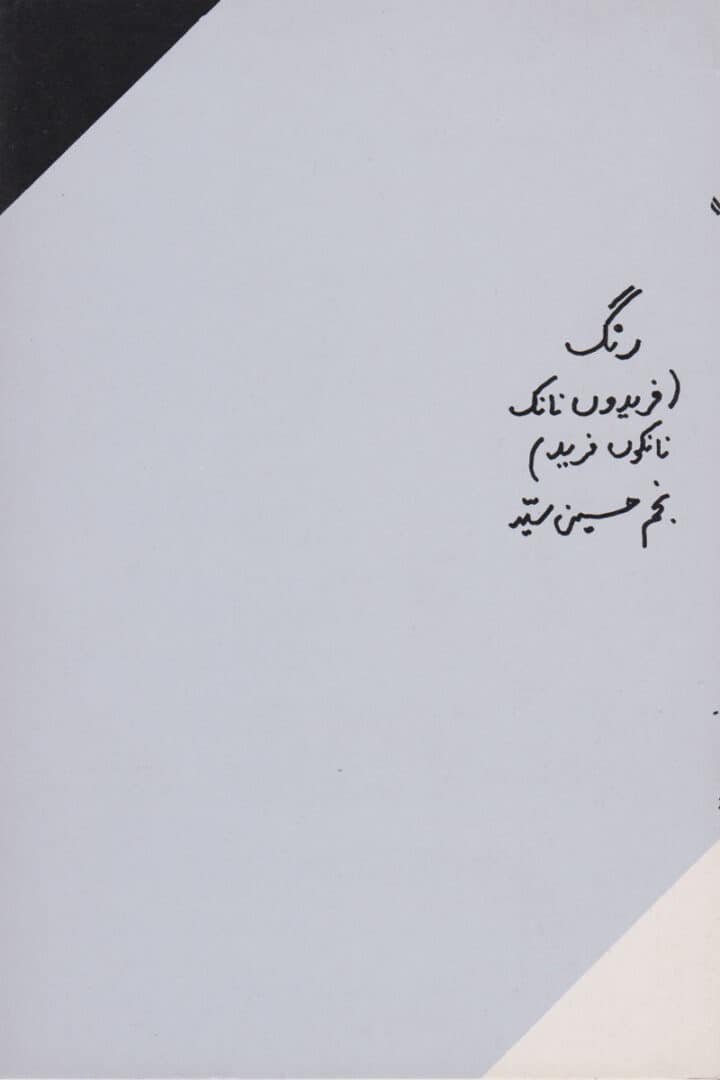 رنگ
(فریدوں نانک
نانکوں فرید)
نجم حسین سیّد